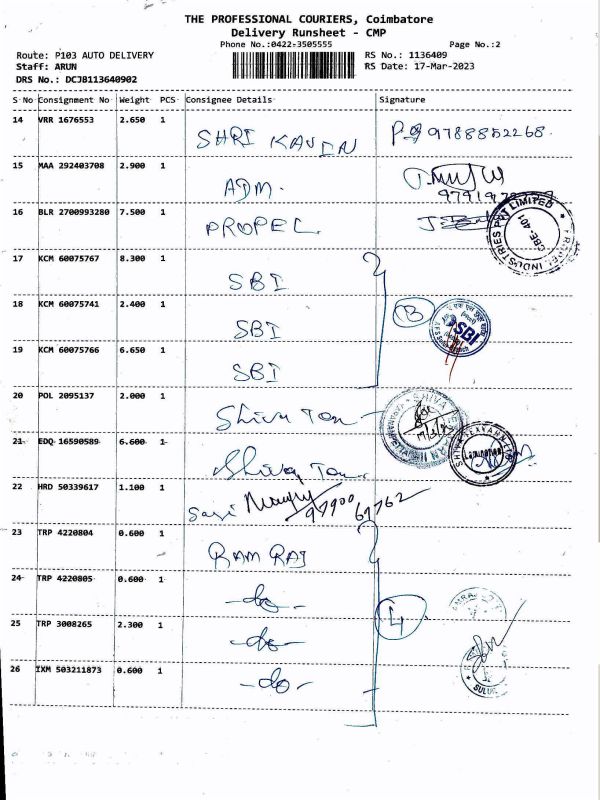 THE PROFESSIONAL COURIERS, Coimbatore
Delivery Runsheet - CMP
Phone No.:0422-3505555 Page No.:2
Route: P103 AUTO DELIVERY RS No.: 1136409
Staff: ARUN RS Date: 17-Mar-2023
DRS No.: DCJB113640902
S No Consignment No Weight PCS Consignee Details Signature
14 VRR 1676553 2.650 1 SHRI KAVIN 9788852268
15 MAA 292403708 2.900 1 ADM.
16 BLR 2700993280 7.500 1 PROPEL
INDUSTRIES PVT LIMITED
CBE-401
17 KCM 60075767 8.300 1 SBI
18 KCM 60075741 2.400 1 SBI
SBI
19 KCM 60075766 6.650 1 SBI
20 POL 2095137 2.000 1 Shiva Tex
21 EDQ 16590589 6.600 1 Shiva Tex
22 HRD 50339617 1.100 1 97900 67762
23 TRP 4220804 0.600 1 RAM RAJ
24 TRP 4220805 0.600 1 -do-
4
25 TRP 3008265 2.300 1 -do-
26 IXM 503211873 0.600 1 -do-